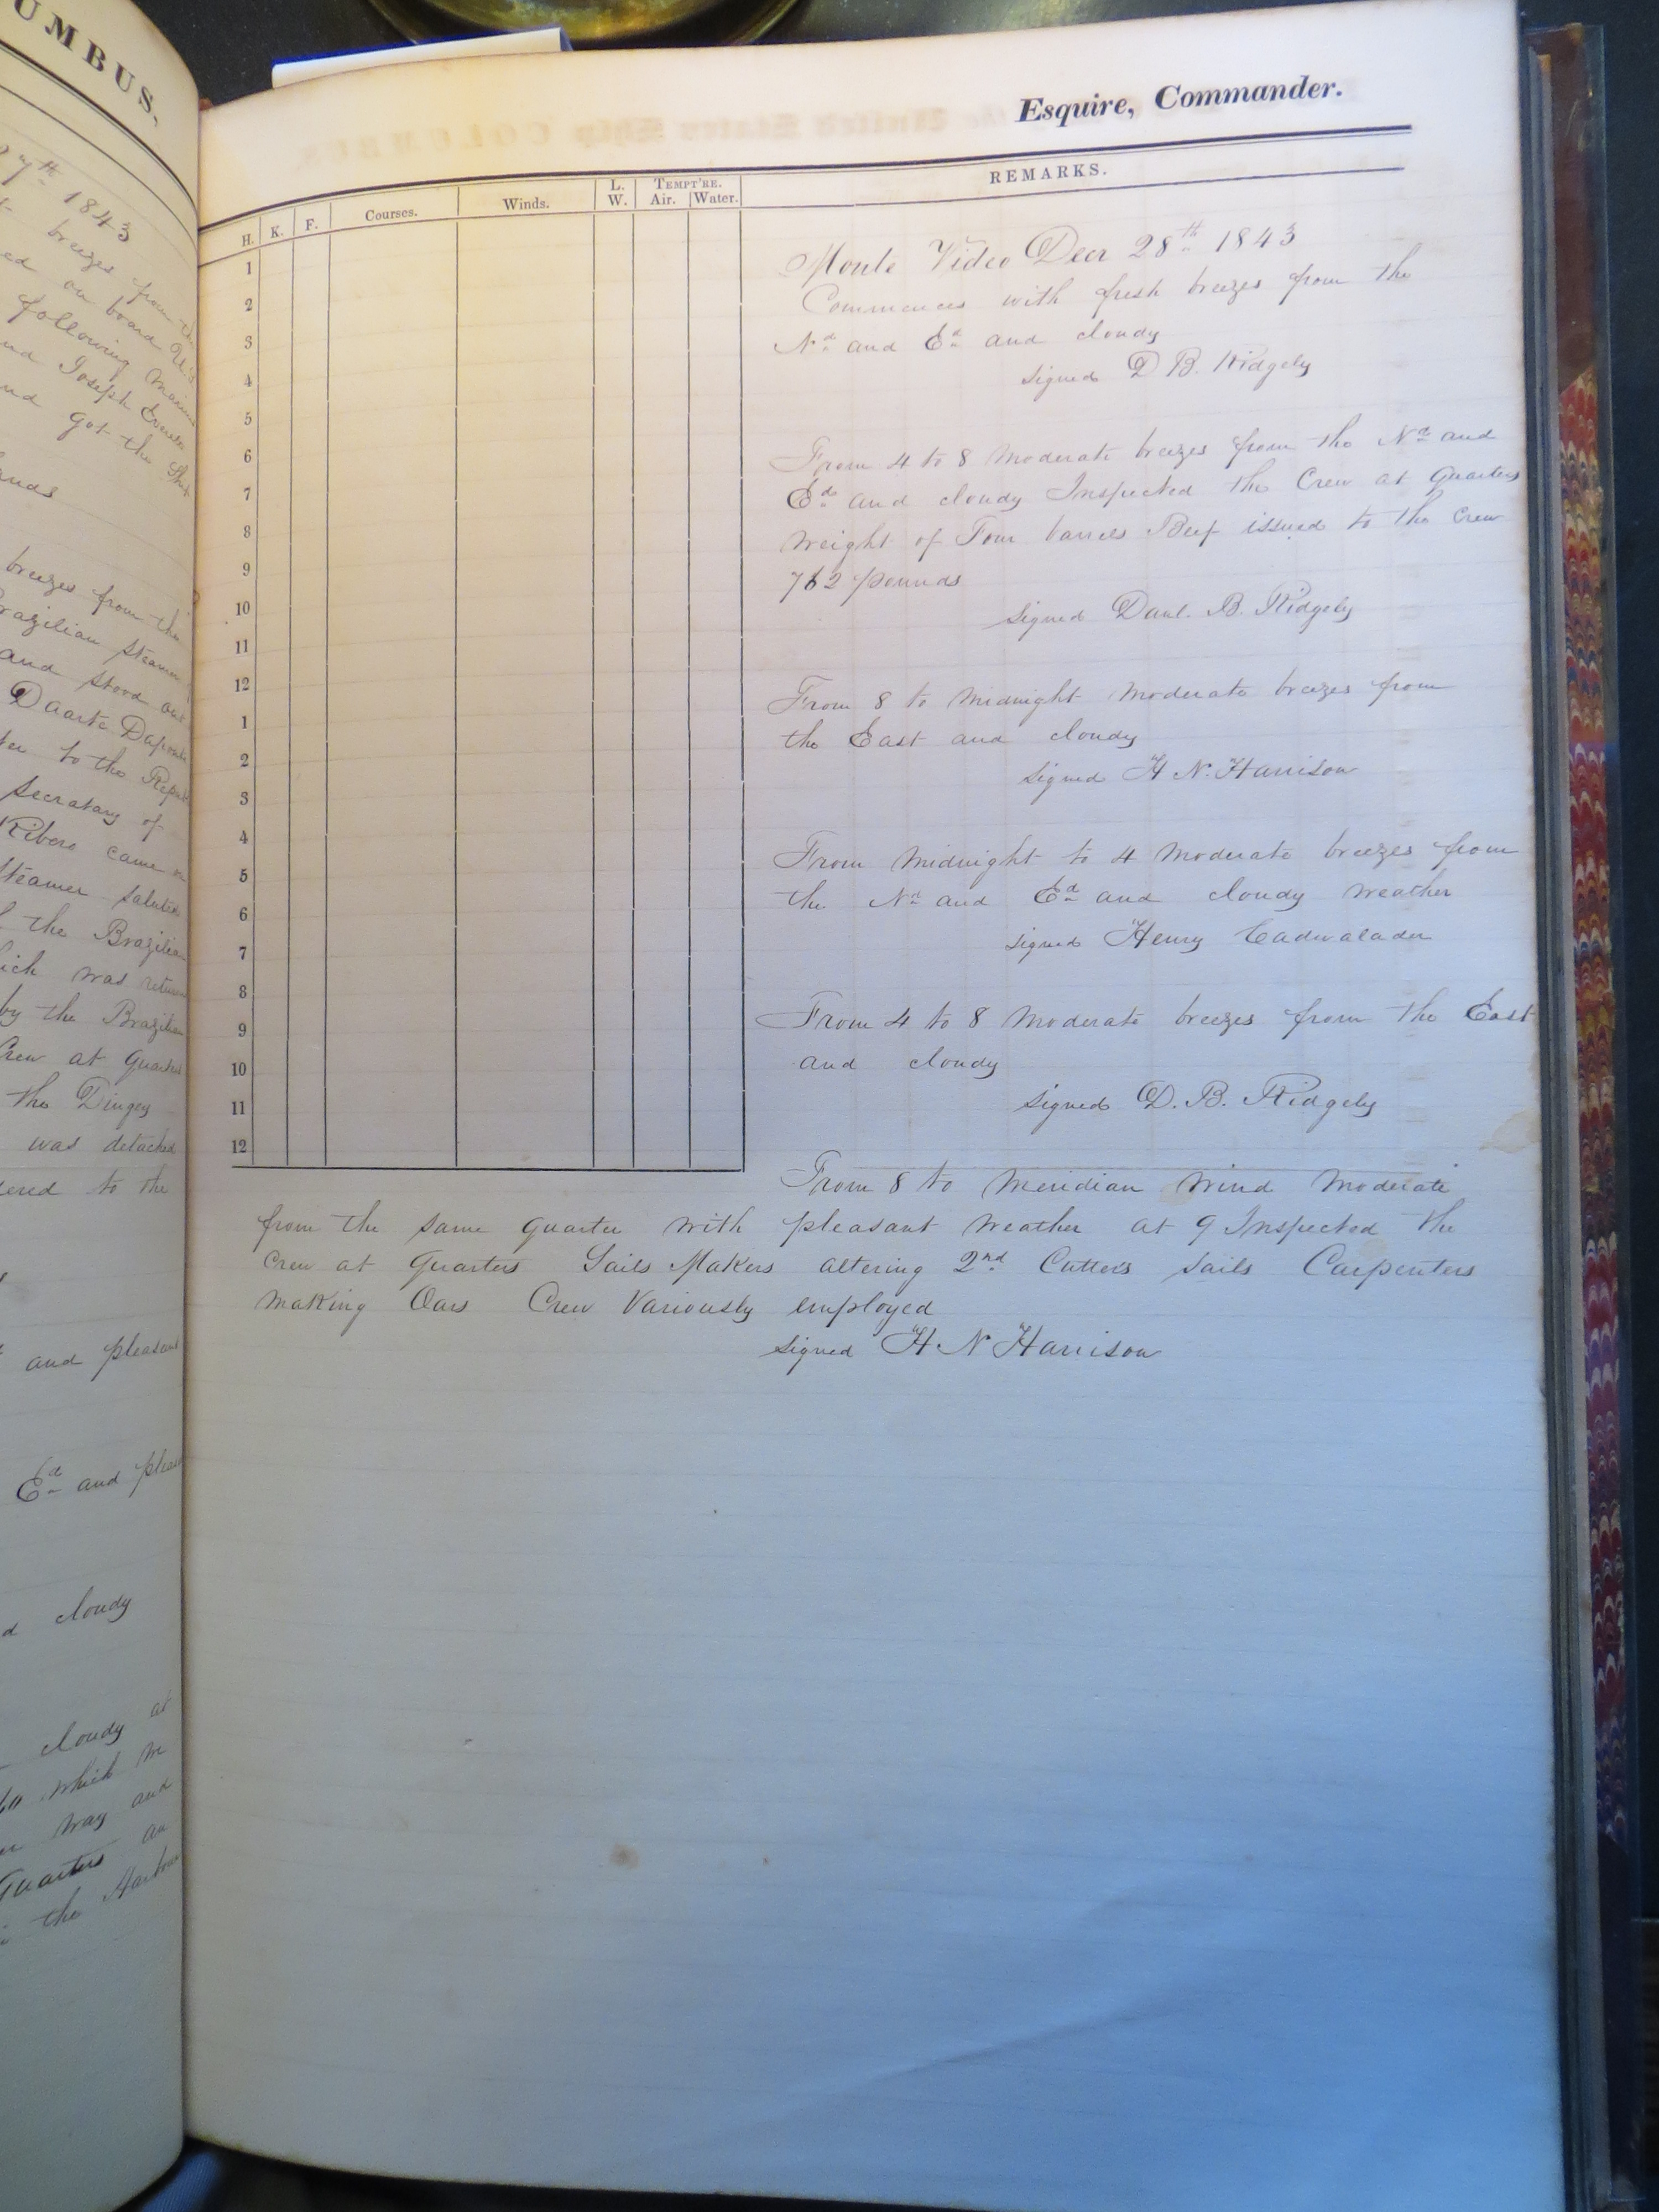 UMBUS.
27th 1843
breezes from the
ed on board U.S
following
nd Joseph
nd got the Ship
ands
breezes from the
razilian Steamer
and stood out
Daarte
ter to the
Secratary of
Ribero came
Steamer
the Brazilian
ich was
by the Brazilian
Crew at Quarters
the Dingey
was detached
ered to the
and pleasant
Ed and
d cloudy
cloudy at
which we
way and
Quarters an
the
Esquire, Commander.
H. K. F. Courses. Winds. L. W. TEMPT'RE. Air. Water. REMARKS.
1
2
3
4
5
6
7
8
9
10
11
12
1
2
3
4
5
6
7
8
9
10
11
12
Monte Video Decr 28th 1843
Commences with fresh breezes from the
Nd and Ed and cloudy
signed D B. Ridgely
From 4 to 8 Moderate breezes from the Nd and
Ed and cloudy Inspected the Crew at Quarters
Weight of Four barrels Beef issued to the Crew
762 pounds
signed Danl. B. Ridgely
From 8 to Midnight Moderate breezes from
the East and cloudy
signed H N. Harrison
From Midnight to 4 Moderate breezes from
the Nd and Ed and cloudy weather
signed Henry Cadwalader
From 4 to 8 Moderate breezes from the East
and cloudy
signed D. B. Ridgely
From 8 to Meridian Wind Moderate
from the same quarter with pleasant weather at 9 Inspected the
Crew at Quarters Sails Makers altering 2nd Cutters sails Carpenters
making Oars Crew Variously employed
signed H. N Harrison